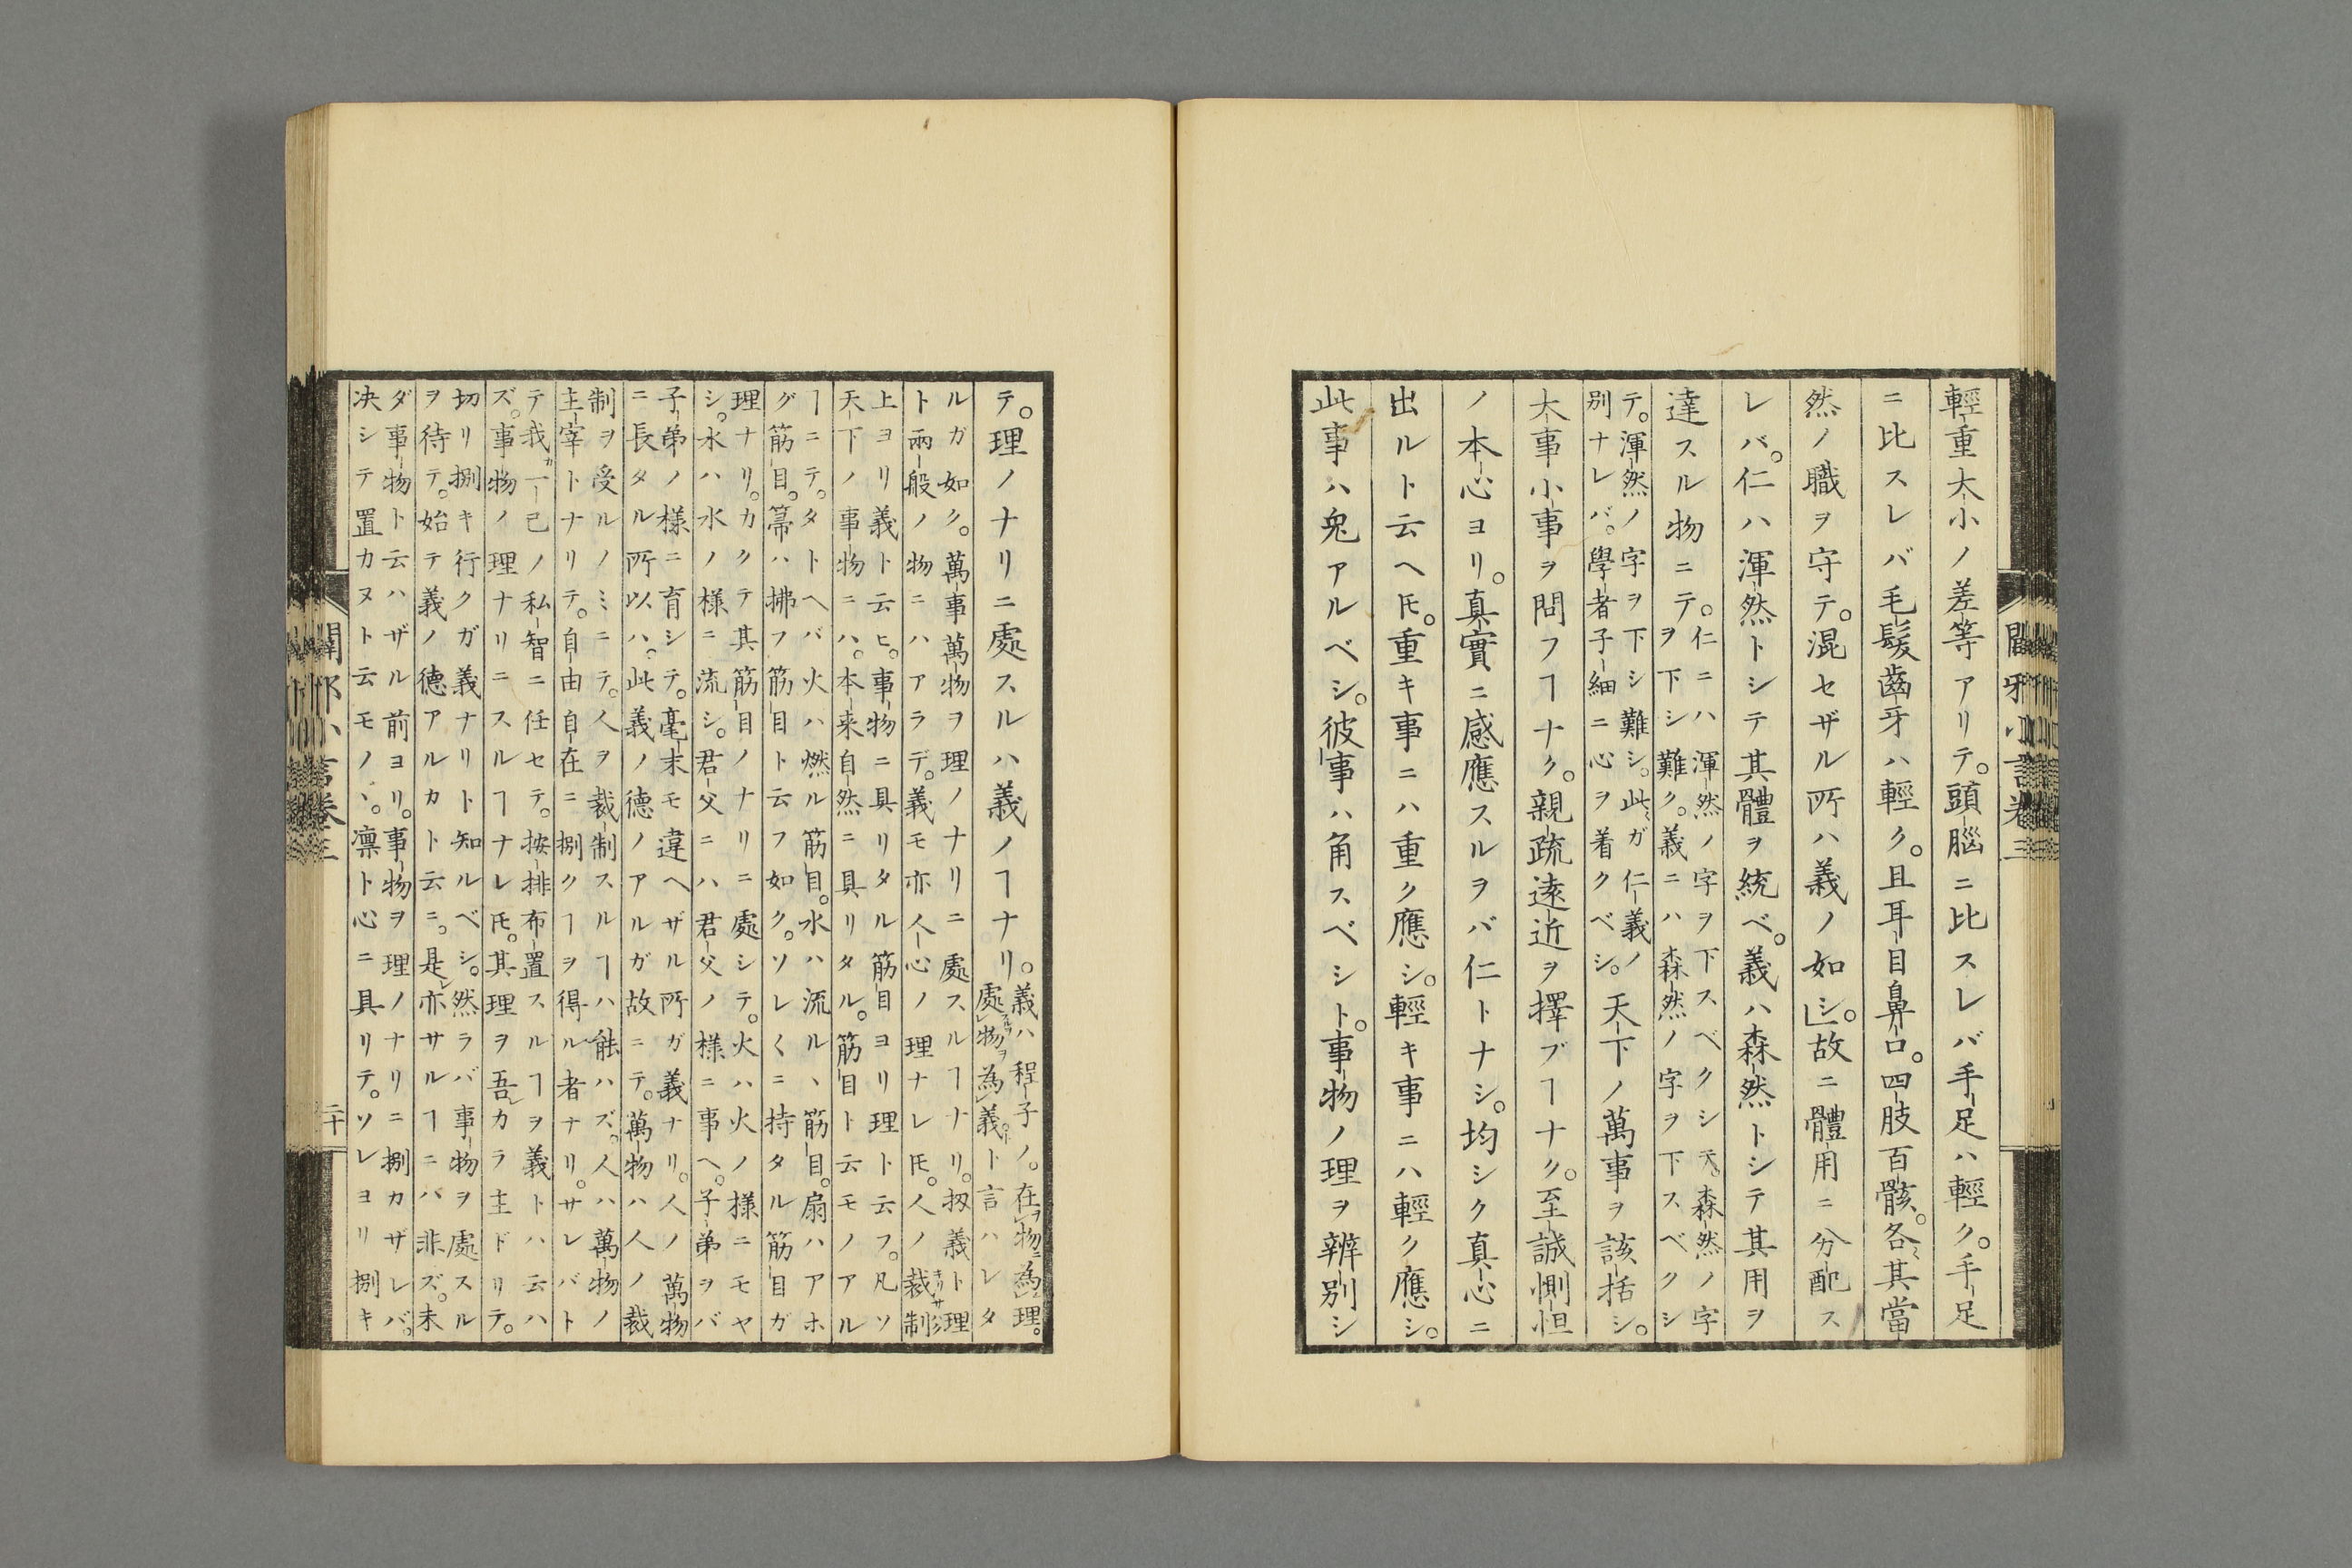 輕重大小ノ差等アリテ。頭腦ニ比スレバ手足ハ輕ク。手足
ニ比スレバ毛髮齒牙ハ輕ク。且耳目鼻口。四肢百骸。各〻其當
然ノ職ヲ守テ。混セザル所ハ義ノ如シ。」故ニ體用ニ分配ス
レバ。仁ハ渾然トシテ其體ヲ統ベ。義ハ森然トシテ其用ヲ
達スル物ニテ。
仁ニハ渾然ノ字ヲ下スベクシテ。森然ノ字
ヲ下シ難ク。義ニハ森然ノ字ヲ下スベクシ
テ。渾然ノ字ヲ下シ難シ。此〻ガ仁義ノ
別ナレバ。學者子細ニ心ヲ着クベシ。
天下ノ萬事ヲ該括シ。
大事小事ヲ問フヿナク。親疏遠近ヲ擇ブヿナク。至誠惻怛
ノ本心ヨリ。真實ニ感應スルヲバ仁トナシ。均シク真心ニ
出ルト云ヘ𪜈。重キ事ニハ重ク應シ。輕キ事ニハ輕ク應シ。
此事ハ兔アルベシ。彼事ハ角スベシト。事物ノ理ヲ辨別シ
闢邪小言卷三
テ。理ノナリニ處スルハ義ノヿナリ。
義ハ程子ノ。在ヲ物ニ為レ理。
處レ物ヲ為レ義ト言ハレタ
ルガ如ク。萬事萬物ヲ理ノナリニ處スルヿナリ。扨義ト理
ト兩般ノ物ニハアラデ。義モ亦人心ノ理ナレ𪜈。人ノ裁制
上ヨリ義ト云ヒ。事物ニ具リタル筋目ヨリ理ト云フ。凡ソ
天下ノ事物ニハ。本來自然ニ具リタル。筋目ト云モノアル
ヿニテ。タトヘバ火ハ燃ル筋目。水ハ流ルヽ筋目。扇ハアホ
グ筋目。箒ハ拂フ筋目ト云フ如ク。ソレ〳〵ニ持タル筋目ガ
理ナリ。カクテ其筋目ノナリニ處シテ。火ハ火ノ樣ニモヤ
シ。水ハ水ノ樣ニ流シ。君父ニハ君父ノ樣ニ事ヘ。子弟ヲバ
子弟ノ樣ニ育シテ。毫末モ違ヘザル所ガ義ナリ。人ノ萬物
ニ長タル所以ハ。此義ノ德ノアルガ故ニテ。萬物ハ人ノ裁
制ヲ受ルノミニテ。人ヲ裁制スルヿハ能ハズ。人ハ萬物ノ
主宰トナリテ。自由自在ニ捌クヿヲ得ル者ナリ。サレバト
テ我ガ一己ノ私智ニ任セテ。按排布置スルヿヲ義トハ云ハ
ズ。事物ノ理ナリニスルヿナレ𪜈。其理ヲ吾レカラ主ドリテ。
切リ捌キ行クガ義ナリト知ルベシ。然ラバ事物ヲ處スル
ヲ待テ。始テ義ノ德アルカト云ニ。是レ亦サルヿニバ非ズ。未
ダ事物ト云ハザル前ヨリ。事物ヲ理ノナリニ捌カザレバ。
决シテ置カヌト云モノヽ。凛ト心ニ具リテ。ソレヨリ捌キ
闢邪小言卷三
二十